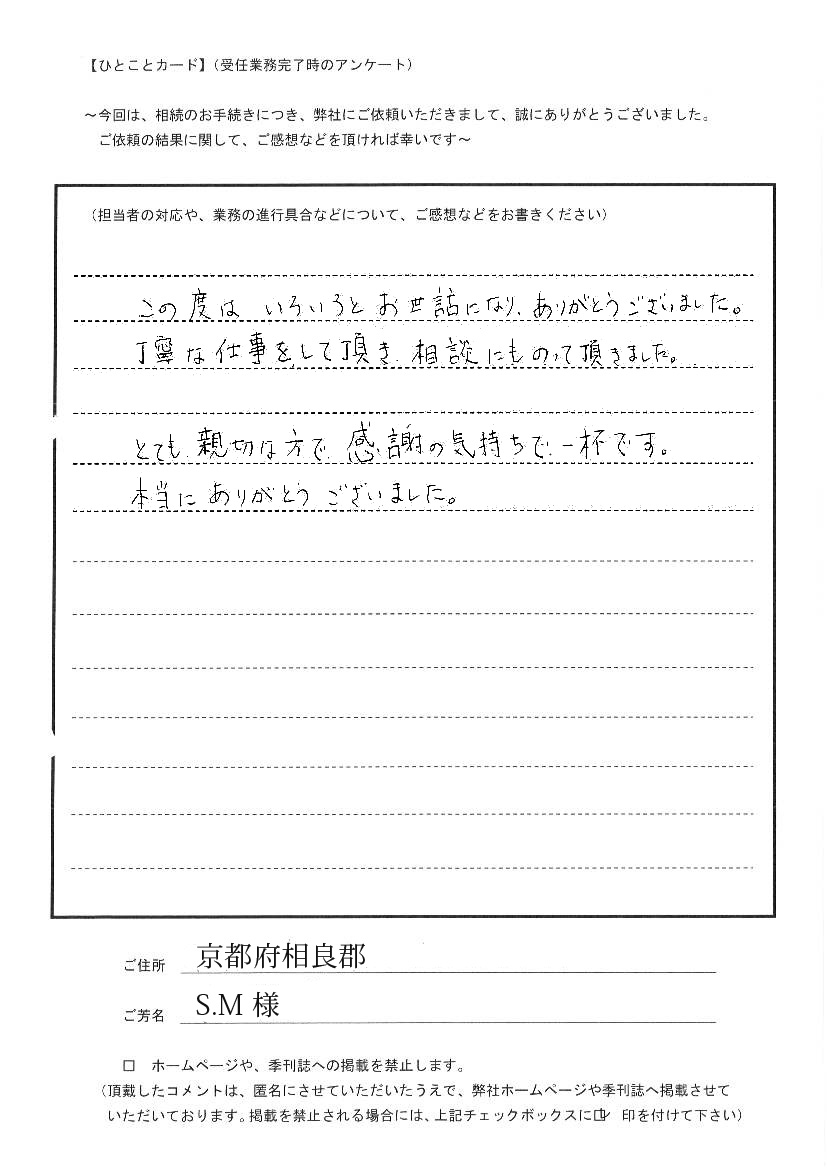 【ひとことカード】（受任業務完了時のアンケート）
～今回は、相続のお手続きにつき、弊社にご依頼いただきまして、誠にありがとうございました。
ご依頼の結果に関して、ご感想などを頂ければ幸いです～
（担当者の対応や、業務の進行具合などについて、ご感想などをお書きください）
この度は いろいろと お世話になり、ありがとうございました。
丁寧な仕事をして頂き、相談にものって頂きました。
とても、親切な方で、感謝の気持ちで、一杯です。
本当に ありがとう ございました。
ご住所 京都府相良郡
ご芳名 S.M 様
□ ホームページや、季刊誌への掲載を禁止します。
（頂戴したコメントは、匿名にさせていただいたうえで、弊社ホームページや季刊誌へ掲載させて
いただいております。掲載を禁止される場合には、上記チェックボックスに☑ 印を付けて下さい）